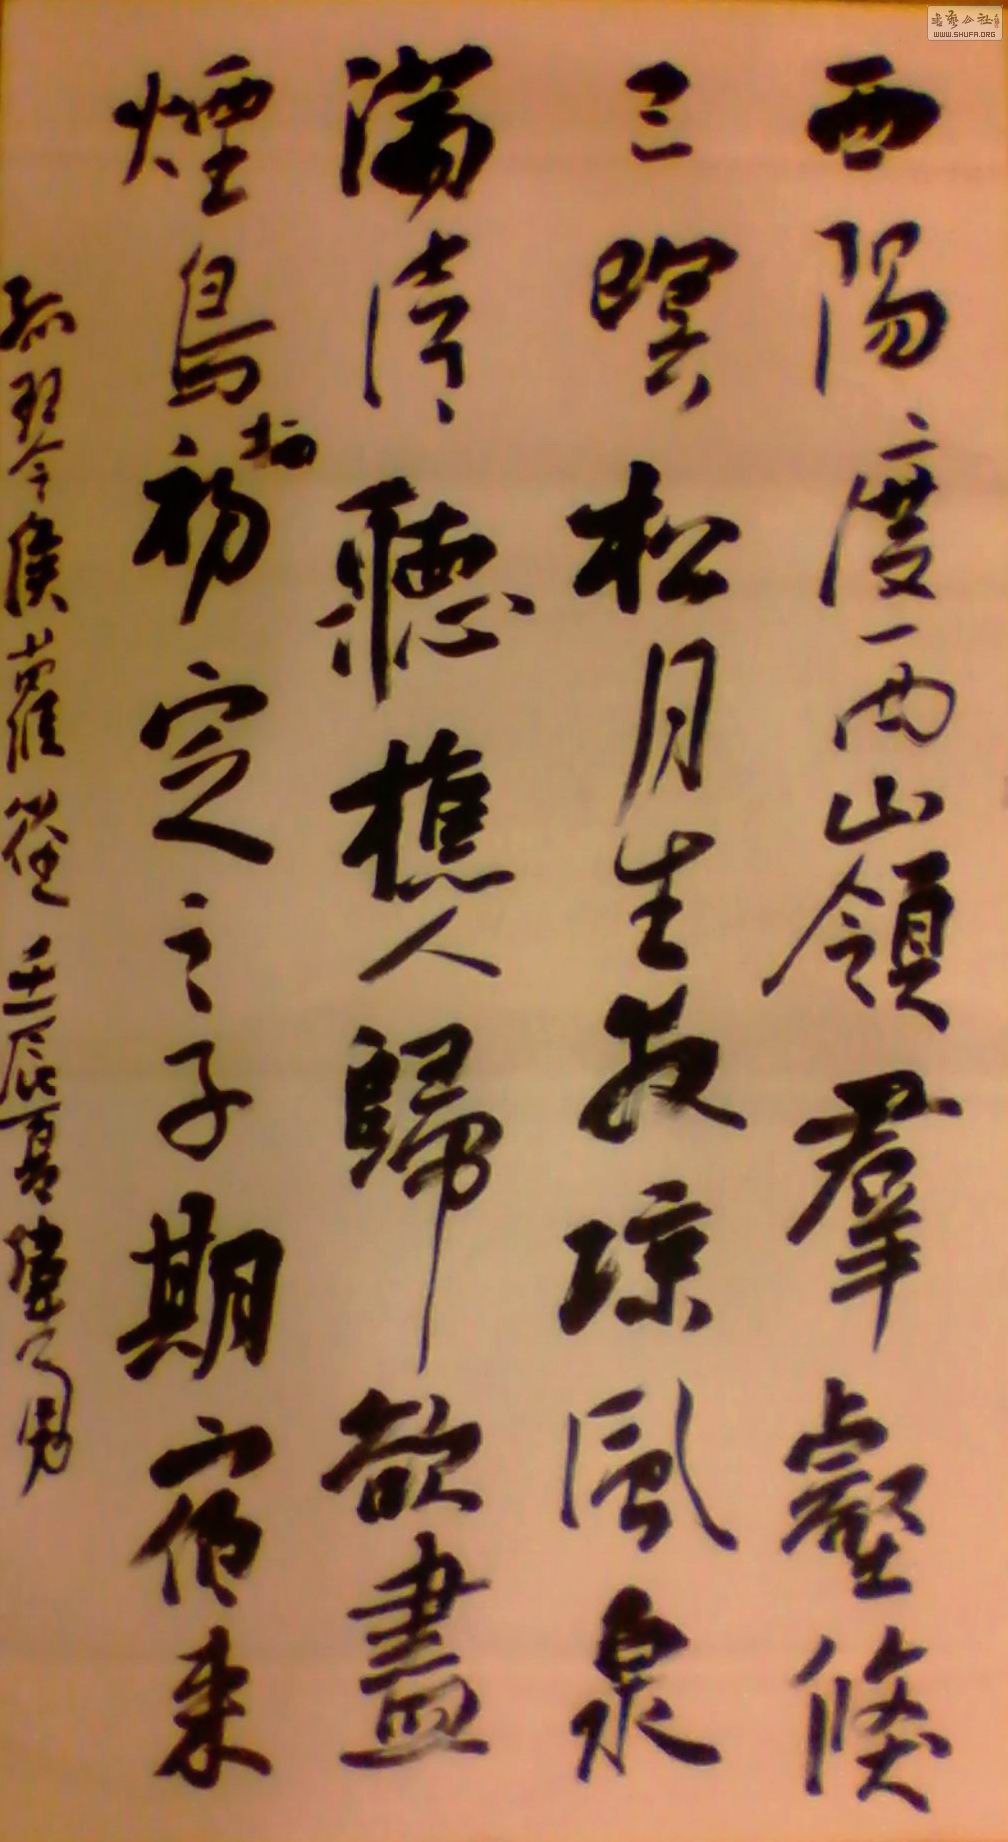 書藝公社
WWW.SHUFA.ORG
西陽度西嶺羣壑倏
已暝松月生夜凉風泉
滿清聽樵人歸欲盡
煙鳥栖初定之子期宿來
孤琴候蘿徑 壬辰夏